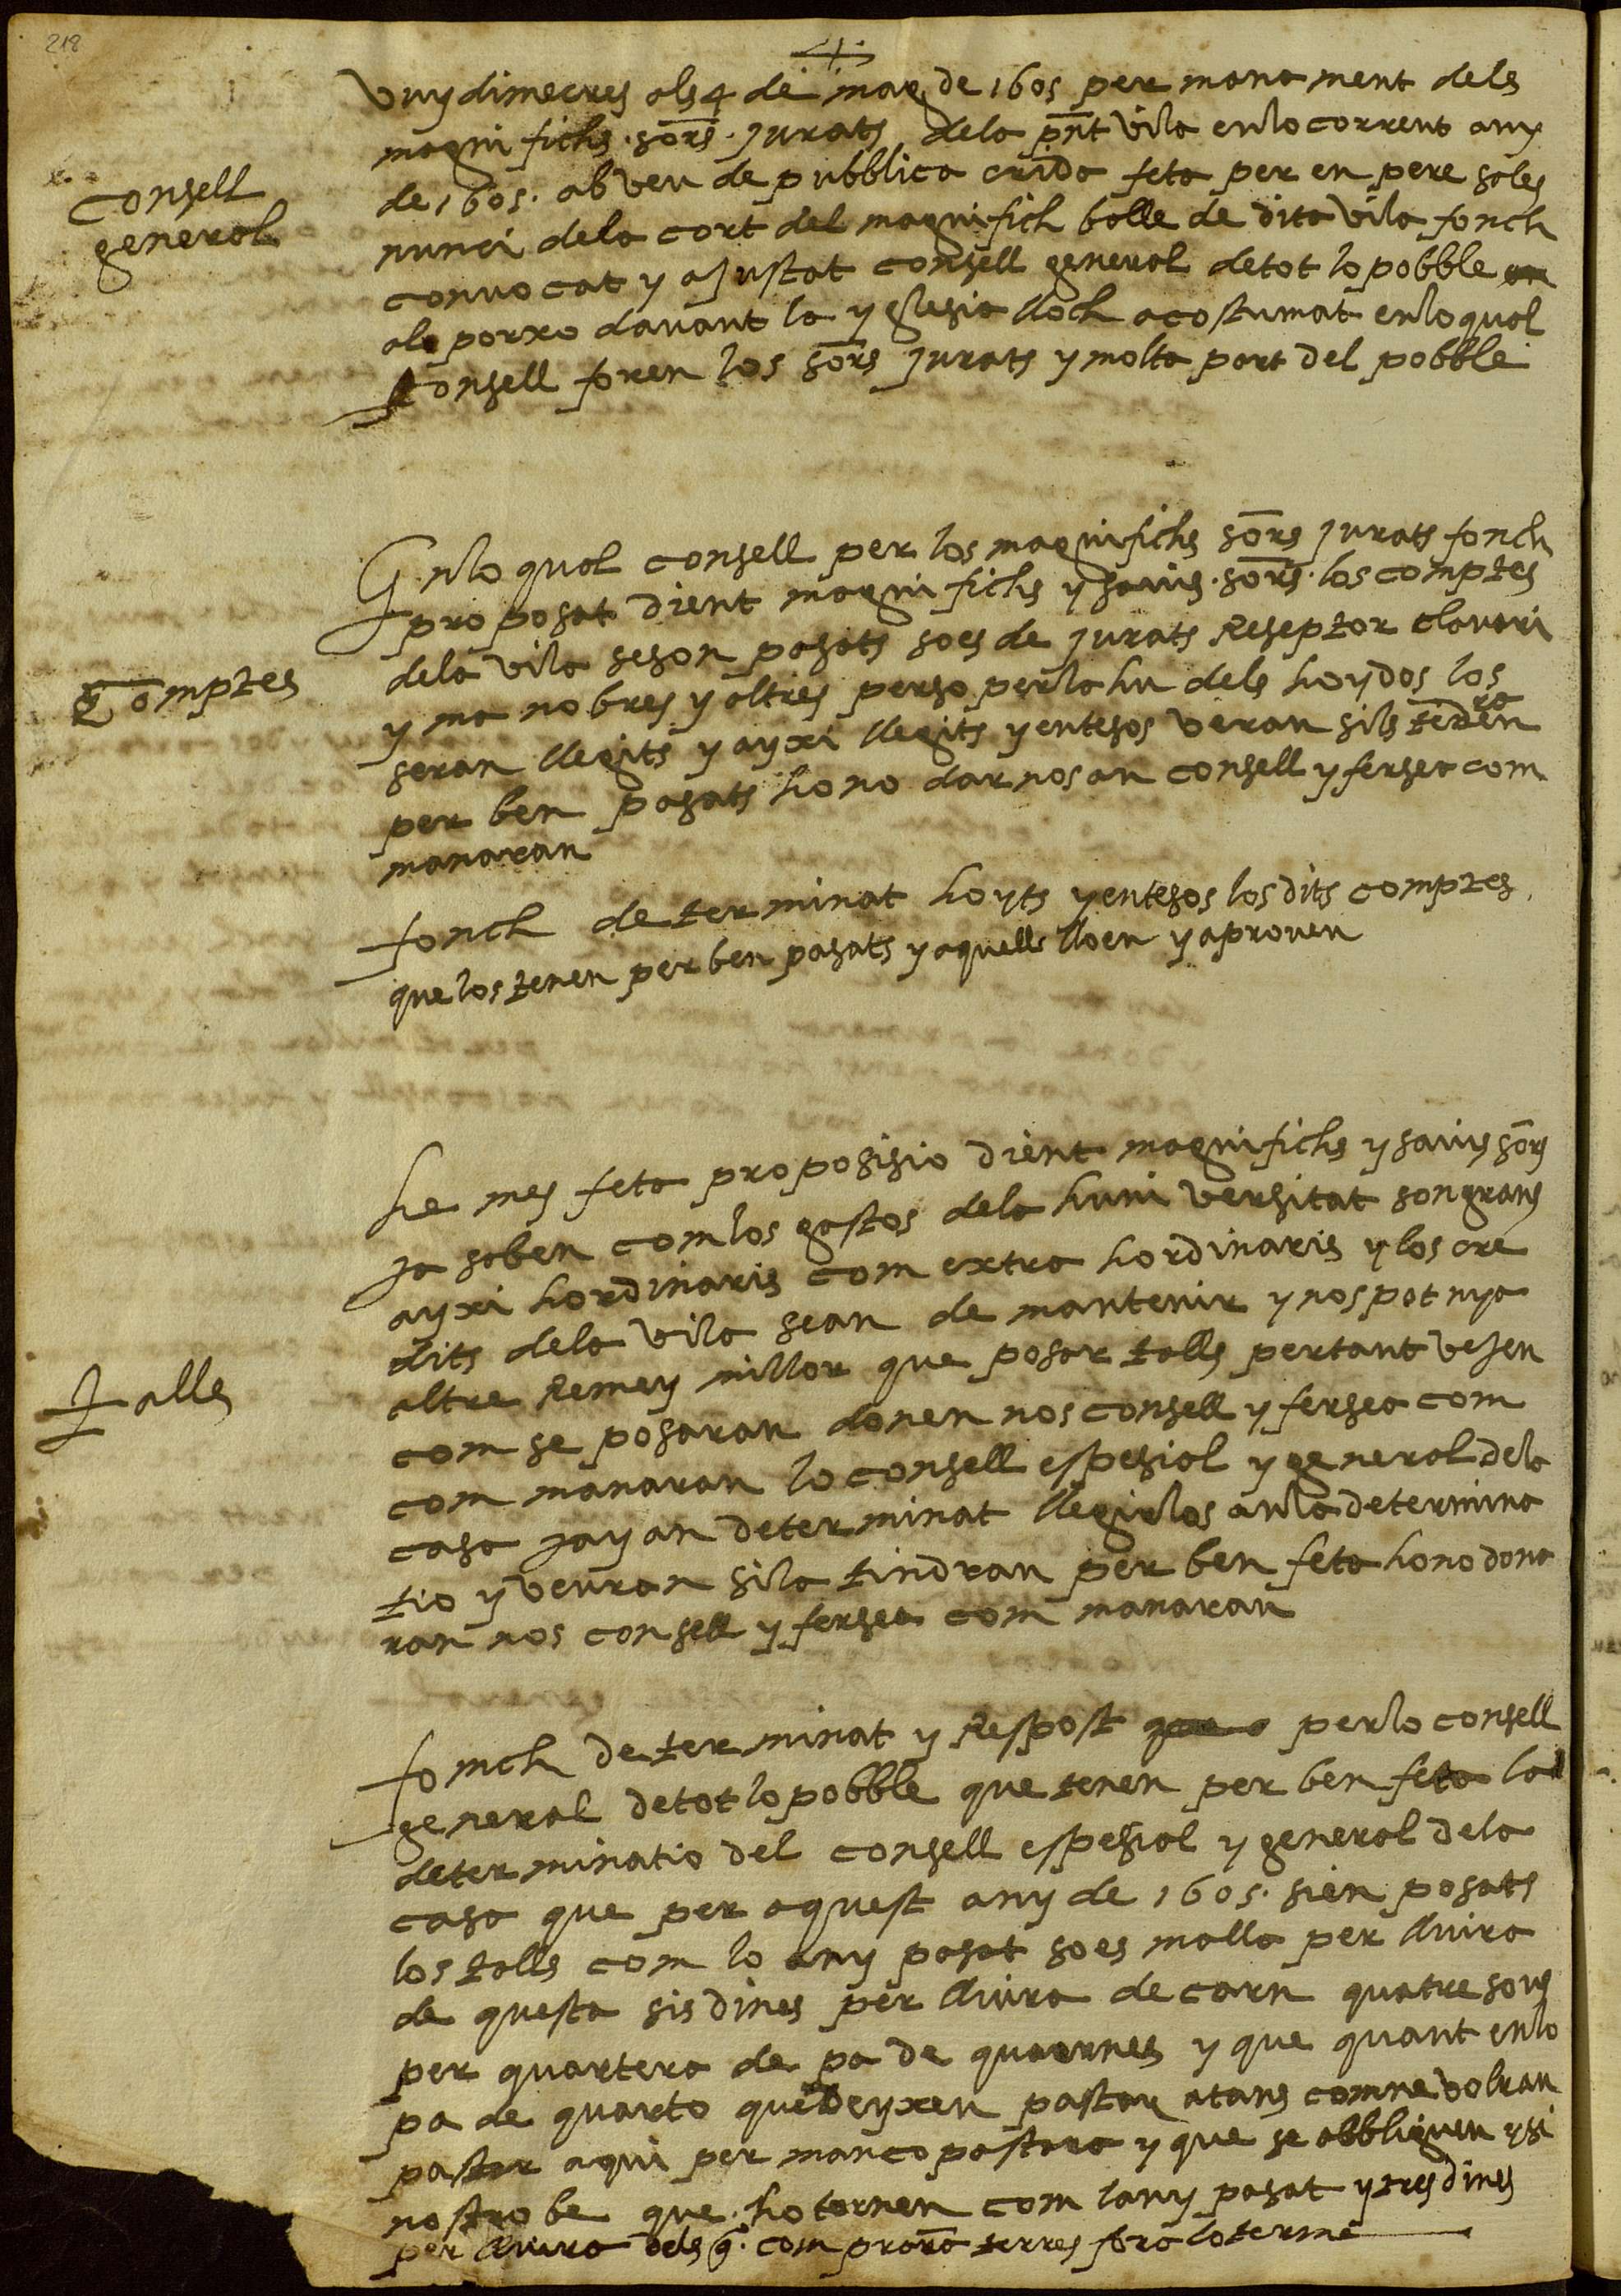 218
Vuy dimecres als 4 de mag de 1605 per mana ment dels
magni fichs . sors . jurats dela pnt vila enlo corrent any
de 1605 . ab veu de pubblica crida feta per en pere sales
Consell
general
nunci dela cort del magnifich balle de dita vila fonch
convocat y ajustat consell general de tot lo pobble
ala porxo davant la yglesia lloch acostumat enlo qual
Consell foren los sors jurats y molta part del pobble
Enlo qual consell per los magnifichs sors jurats fonch
pro posat dient magni fichs y savis . sors . los comptes
dela vila seson pasats soes de jurats reseptor clavari
Comptes
y ma nobres y altres perso perla hu dels hoydos los
seran llegits y ayxi llegits y entesos veran sils tendran
per ben pasats hono dar nos an consell y fersea com
manaran
fonch de ter minat hoyts y entesos los dits comptes
que los tenen per ben pasats y aquells lloen y aproven
he mes feta proposisio dient magnifichs y savis sors
ja saben com los gastos dela huni versitat son grans
ayxi hordinaris com extra hordinaris y los cre
dits dela vila sean de mantenir y nos pot nya
altre remey millor que posar talls pertant vejen
Talls
com se posaran donen nos consell y fersea com
com manaran lo consell espesial y general dela
casa jay an deter minat llegirlos anla determina
tio y veuran sila tindran per ben feta hono dona
ran nos consell y fersea com manaran
fonch de ter minat y respost perlo consell
general detot lo pobble que tenen per ben feta la
deter minatio del consell espesial y general dela
casa que per aquest any de 1605 . sien posats
los talls com lo any pasat soes malla per lliura
de questa sis dines per lliura de carn quatre sous
per quartera de pa de quaernes y que quant enlo
pa de quarto que deyxen pastar atans comne volran
pastar aqui per manco pastara y que se obbliguen y si
nostro be que . ho tornen com lany pasat y tres dines
per lliura dels q . com prara terres fora lo terme